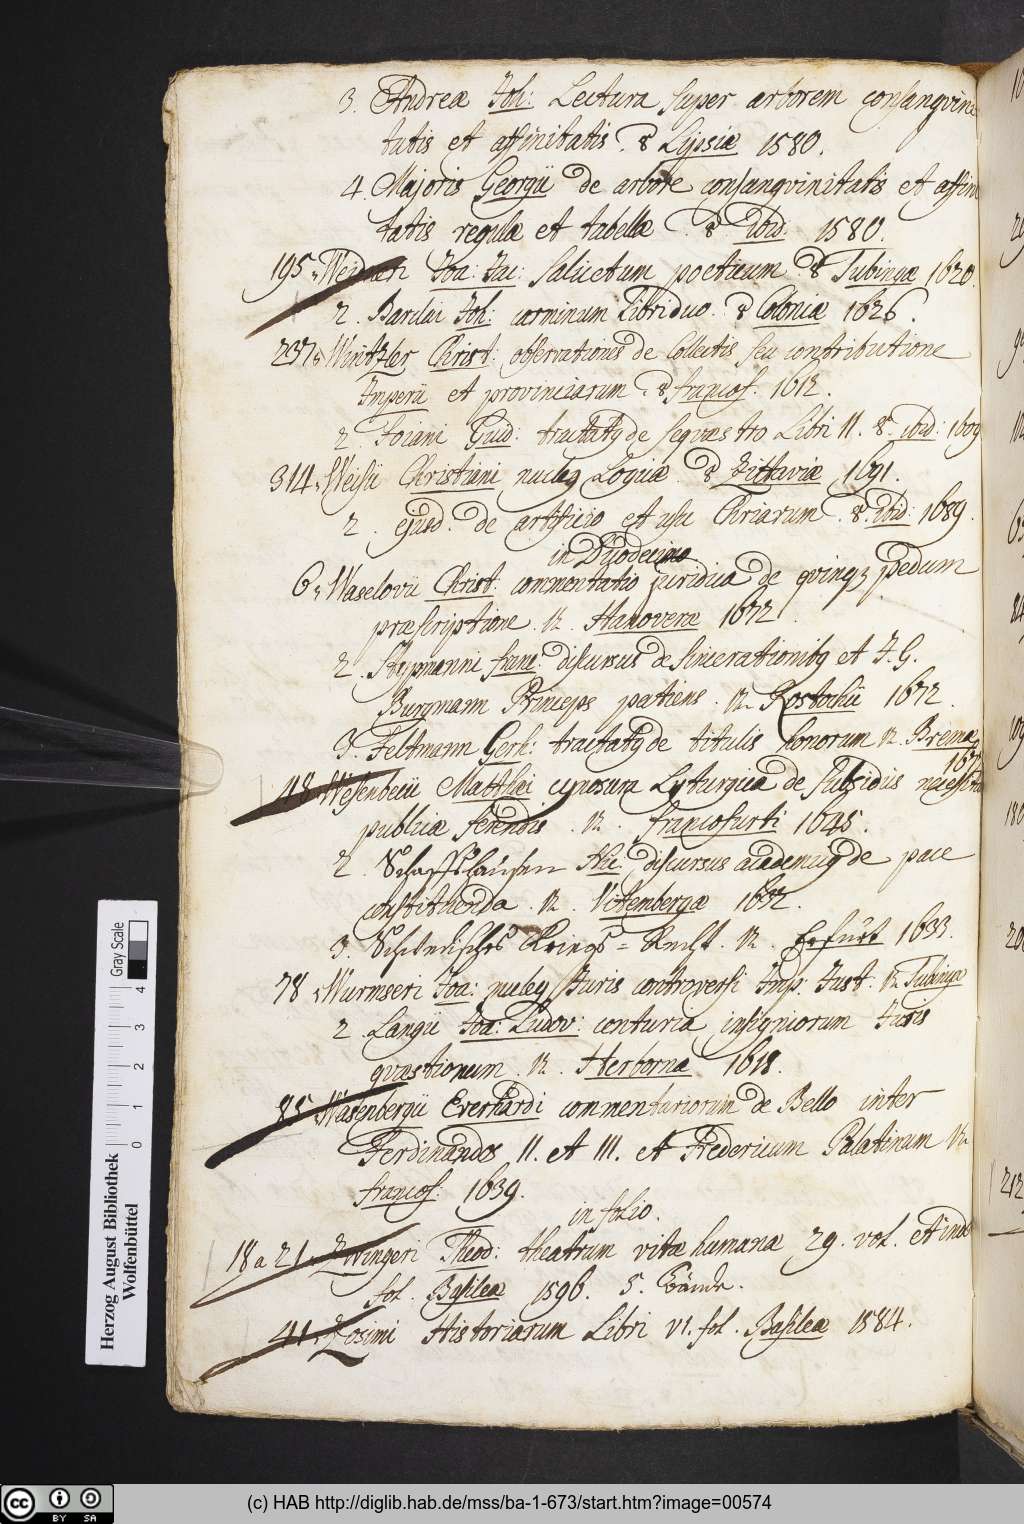 3. Andreæ Joh: Lectura super arborem consangvini
tatis et affinitatis. 8 Lipsiæ 1580.
4. Majoris Georgii de arbore consangvinitatis et affini
tatis regulæ et tabellæ. 8. ibid. 1580.
195. Weidneri Joa: Jac: salicetum poeticum. 8 Tubingæ 1620.
2. Barclai Joh: carminum Libri duo. 8 Coloniæ 1626.
237. Wintzler, Christ: observationis de Collectis seu contributione
Imperii et provinciarum. 8 francof. 1612.
2. Foiani Guid: tractatq de seqvæstro Libri II. 8. ibid: 1609
314. Weisii Christiani nucleq Logicæ. 8 Zittaviæ 1691.
2. ejusd. de artificio et usu Chriarum. 8. ibid: 1689.
in Duodecimo
6. Waselovii Christ: commentatio juridica de qvinq3 pedum
præscriptione. 12. Hanoveræ 1672.
2. Stypmanni franc: discursus de sincerationibq et J. G.
Burgmann Princeps patiens. 12. Rostochii 1672.
3. Feltmann Gerh: tractatq de titulis honorum 12. Bremæ
48. Wesenbecii Matthæi cynosura Lyturgica de subsidiis necessita
publicæ ferendis. 12. francofurti 1645.
2. Schaffshausen Nic: discursus academicq de pace
constituenda. 12. Vitembergæ 1632.
3. Schwedisches Kriegs=Recht. 12. Erfurt 1633.
78. Wurmseri Joa: nucleq Juris controversi Imp: Just: 12 Tubingæ
2. Langii Joa: Ludov: centuria insigniorum Juris
qvæstionum. 12. Herbornæ 1618.
85. Wasenbergii Everhardi commentariorum de Bello inter
Ferdinandos II. et III. et Fredericum Palatinum 12
francof: 1639.
in folio.
18 a 21. Zwingeri Theod: theatrum vitæ humanæ 29. vol. et ind
fol. Basileæ 1596. 5. Bände.
41. Zosimi Historiarum Libri VI. fol. Basileæ 1584.
Herzog August Bibliothek
Wolfenbüttel
0 1 2 3 4
Gray Scale
(c) HAB http://diglib.hab.de/mss/ba-1-673/start.htm?image=00574
CC BY SA